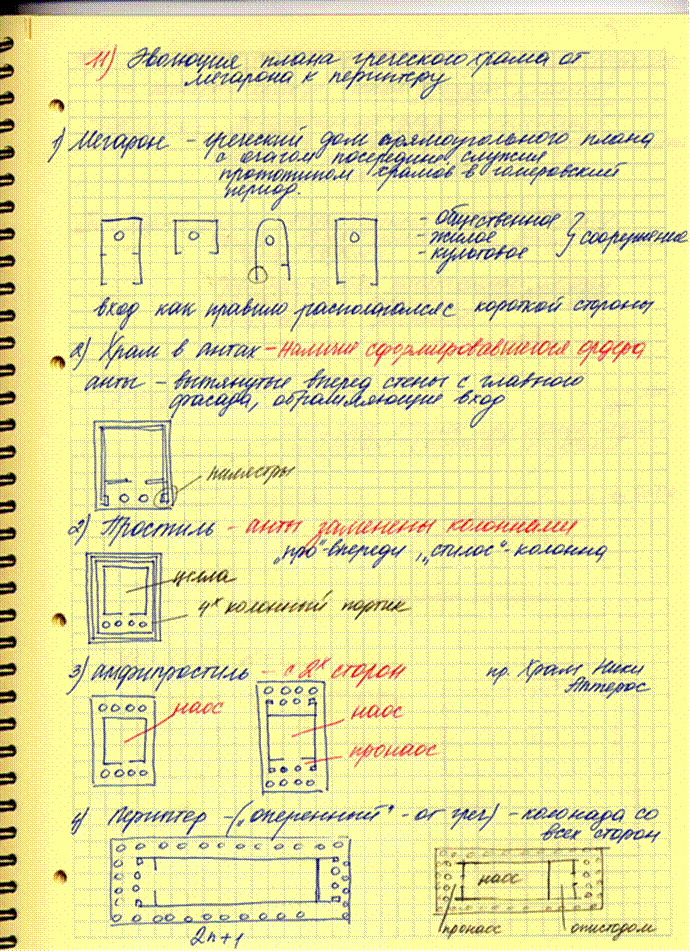 11) Эволюция плана греческого храма от
мегарона к периптеру
1) Мегарон - греческий дом прямоугольного плана
с очагом посередине служил
прототипом храмов в гомеровский
период.
- общественное
- жилое
- культовое
} сооружение
вход как правило располагался с короткой стороны
2) Храм в антах - наличие сформировавшегося ордера
анты - вытянутые вперед стены с главного
фасада, обрамляющие вход
пилястры
2) Простиль - анты заменены колоннами
"про"-впереди, "стилос"-колонна
целла
4х колонный портик
3) амфипростиль - с 2х сторон
пр. Храм Ники
Аптерос
наос
наос
пронаос
4) Периптер - ("оперенный" - от греч) - колонада со
всех сторон
наос
пронаос
опистодом
2n+1